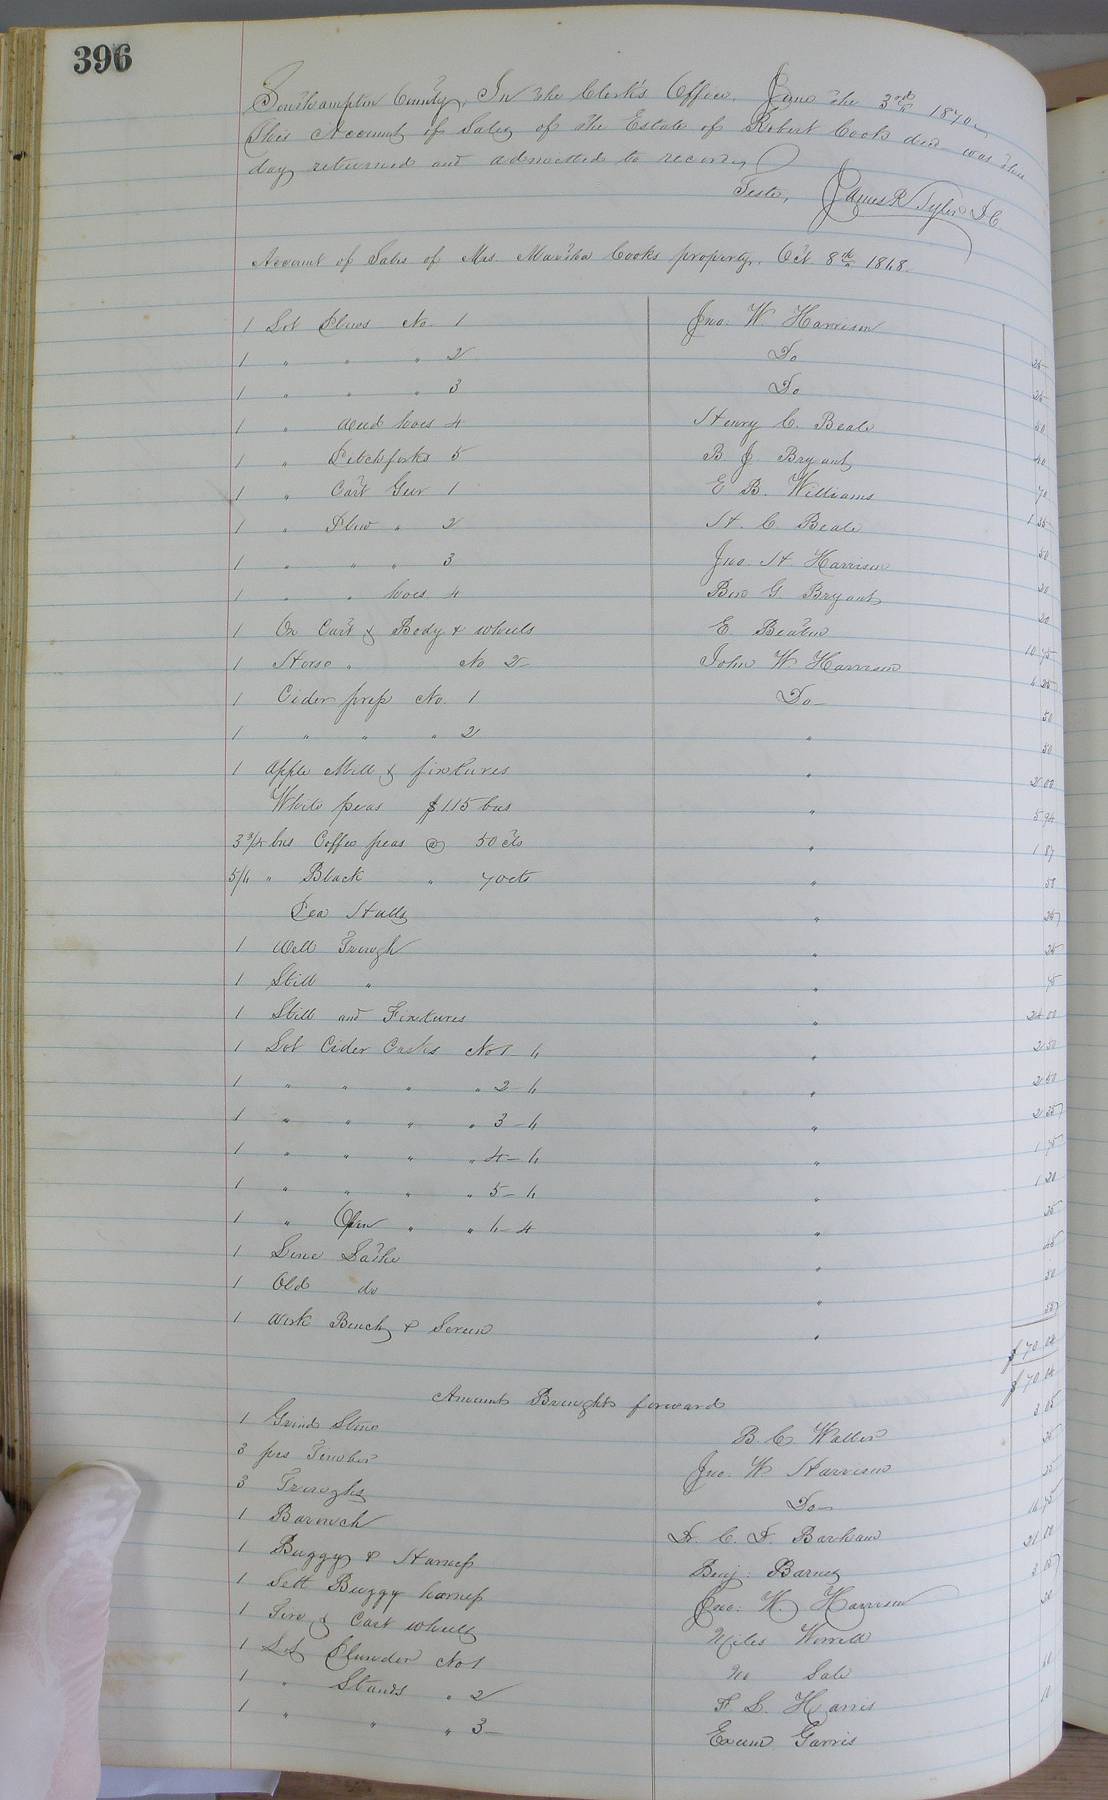 396
Southampton County, In the Clerk's Office, June the 3rd 1870
This Account of Sales of the Estate of Robert Cook decd was this
day returned and admitted to record,
Teste, James R Tyler D.C.
Account of Sales of Mrs. Martha Cooks property, Oct 8th 1868.
1 Lot Plows No 1 Jno. W. Harrison 25
1 " " " 2 Do 25
1 " " " 3 Do 50
1 " Weed hoes 4 Henry C. Beale 40
1 " Pitchforks 5 B J Bryant 70
1 " Cart Gear 1 E B. Williams 1 35
1 " Plow " 2 H. C Beale 50
1 " " " 3 Jno. H. Harrison 20
1 " " hoes 4 Ben G Bryant 20
1 Ox Cart & Body & wheels E Beaton 10 75
1 Horse " No 2 John W Harrison 6 25
1 Cider press No. 1 Do 50
1 " " " 2 " 50
1 Apple Mill & fixtures " 2 00
White peas $1.15 bus " 5 94
3 3/4 bus Coffee peas @ 50 cts " 1 87
5/6 " Black " 70 cts " 58
Pea Hulls " 25
1 Well Trough " 25
1 Still " " 75
1 Still and Fixtures " 24 00
1 Lot Cider Casks No 1 6 " 2 50
1 " " " " 2 6 " 2 50
1 " " " " 3 6 " 2 35
1 " " " " 4 6 " 1 75
1 " " " " 5 6 " 1 20
1 " Open " " 6 4 " 25
1 Lathe " 45
1 Old do " 50
1 Work Bench & Screw " 55
$ 70.04
Amount Brought forward $ 70.04
1 Grind Stone B. C Waller 3 05
3 pcs Timber Jno. W Harrison 25
3 Troughs Do 25
1 Barouch D. C. D. Barham 16 75
1 Buggy & Harness Benj: Barnes 21 00
1 Sett Buggy harness Jno. W. Harrison 3 05
1 & Cart wheels Miles Worrell 20
1 Lot Plunder No 1 no Sale
1 " Stands " 2 F L. Harris 10
1 " " " 3 Exum Garris 10